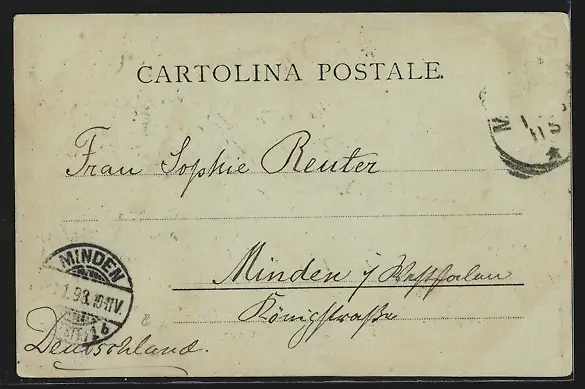 CARTOLINA POSTALE.
Frau Sophie Reuter
Minden i/ Westfalen
Königstraße
Deutschland.
MINDEN
1.98.10-11V.
b